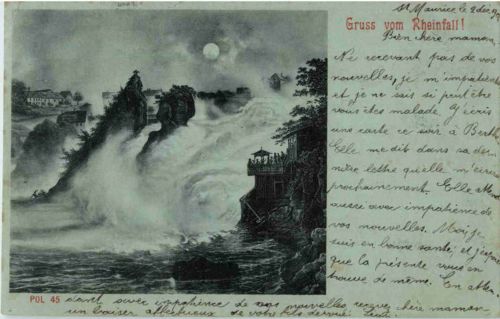 Gruss vom Rheinfall!
St Maurice, le 2 déc.
Bien chère maman
Ne recevant pas de vos
nouvelles, je m'impatiente
et je ne sais si peut être
vous êtes malade. J'écris
une carte ce soir à Berthe
Elle me dit dans sa der-
nière lettre qu'elle m'écrira
prochainement. Elle attend
aussi avec impatience de
vos nouvelles. Moi, je
suis en bonne santé, et j'espère
que la présente vous en
trouve de même. En atten-
dant avec impatience de vos nouvelles recevez chère maman
un baiser affectueux de votre fils dévoué
POL 45